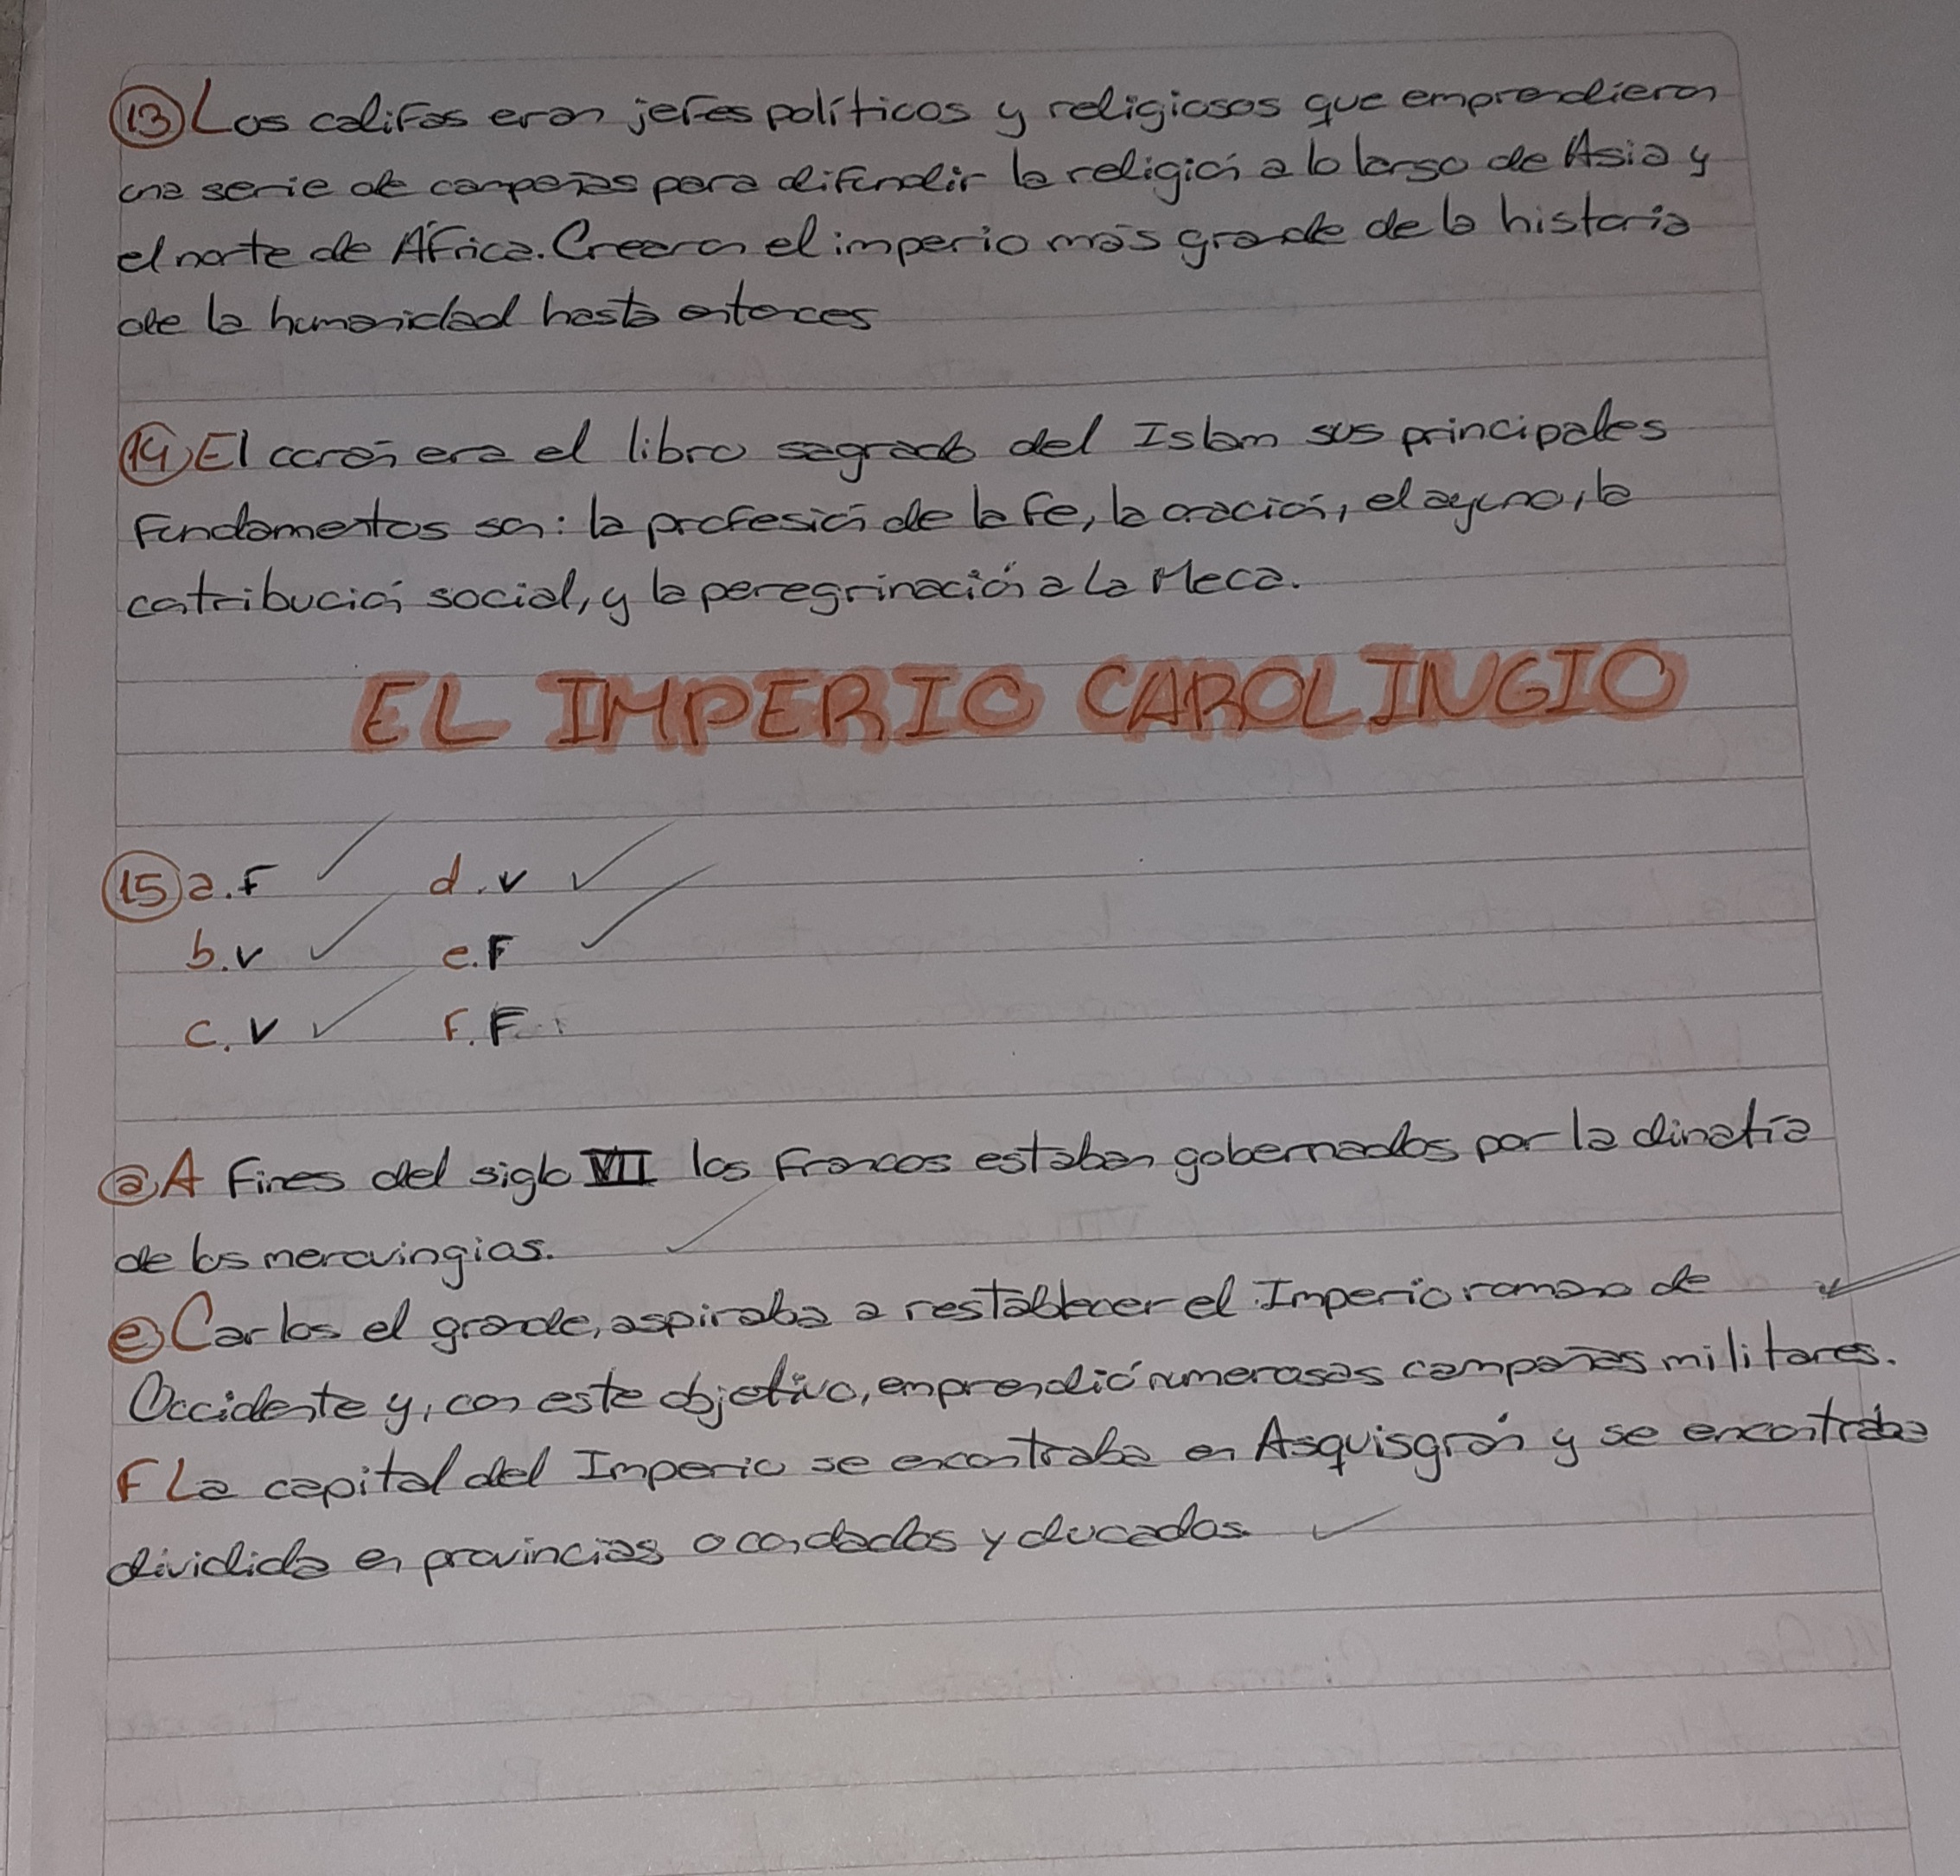 13 Los califas eran jefes políticos y religiosos que emprendieron
una serie de campañas para difundir la religión a lo largo de Asia y
el norte de África. Crearon el imperio más grande de la historia
de la humanidad hasta entonces
14 El corán era el libro sagrado del Islam sus principales
fundamentos son: la profesión de la fe, la oración, el ayuno, la
contribución social, y la peregrinación a La Meca.
EL IMPERIO CAROLINGIO
15 a. F d. V
b. V e. F
c. V F. F
a A fines del siglo VII los francos estaban gobernados por la dinatía
de los merovingios.
e Carlos el grande, aspiraba a restablecer el Imperio romano de
Occidente y, con este objetivo, emprendió numerosas campañas militares.
F La capital del Imperio se encontraba en Asquisgrán y se encontraba
dividida en provincias o condados y ducados